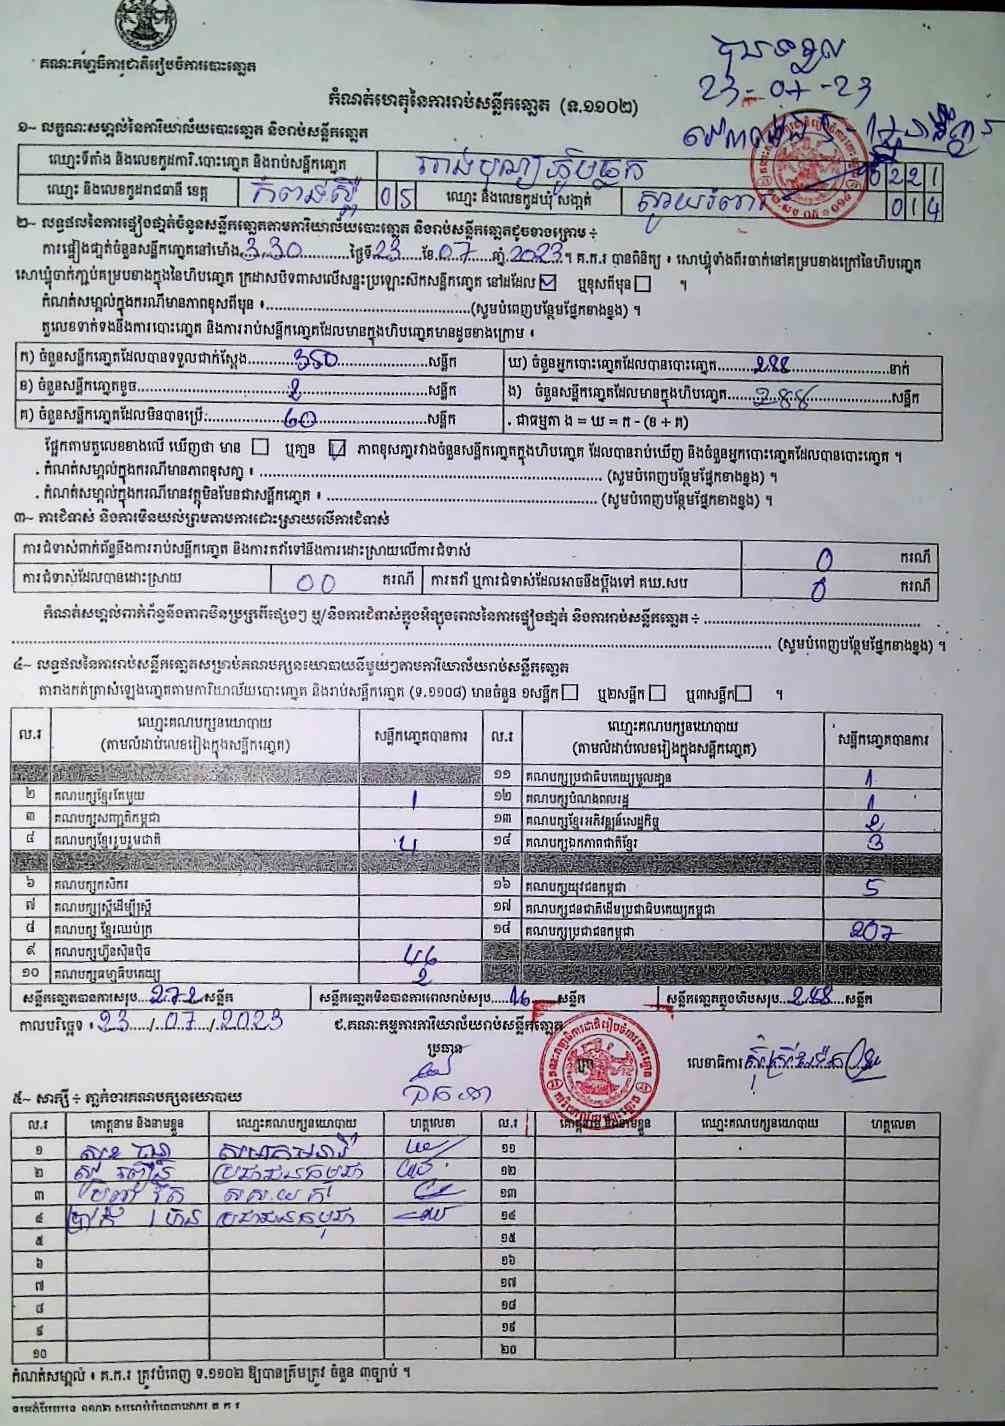 គណៈកម្មាធិការជាតិរៀបចំការបោះឆ្នោត
បានទទួល
23-07-23
កំណត់ហេតុនៃការរាប់សន្លឹកឆ្នោត (ទ.១១០២)
១~ លក្ខណៈសម្គាល់នៃការិយាល័យបោះឆ្នោត និងរាប់សន្លឹកឆ្នោត
ឈ្មោះទីតាំង និងលេខកូដការិ.បោះឆ្នោត និងរាប់សន្លឹកឆ្នោត 0221
ឈ្មោះ និងលេខកូដរាជធានី ខេត្ត កំពង់ស្ពឺ 05 ឈ្មោះ និងលេខកូដឃុំ សង្កាត់ 014
២~ លទ្ធផលនៃការផ្ទៀងផ្ទាត់ចំនួនសន្លឹកឆ្នោតតាមការិយាល័យបោះឆ្នោត និងរាប់សន្លឹកឆ្នោតដូចខាងក្រោម ÷
ការផ្ទៀងផ្ទាត់ចំនួនសន្លឹកឆ្នោតនៅម៉ោង 3.30 ថ្ងៃទី 23 ខែ 07 ឆ្នាំ 2023 ។ គ.ក.រ បានពិនិត្យ ៖ សោឃ្មុំទាំងពីរចាក់នៅគម្របខាងក្រៅនៃហិបឆ្នោត
សោឃ្មុំចាក់ភ្ជាប់គម្របខាងក្នុងនៃហិបឆ្នោត ក្រដាសបិទពាសលើសន្ទះប្រឡោះស៊កសន្លឹកឆ្នោត នៅដដែល ☑ ឬខុសពីមុន ☐ ។
កំណត់សម្គាល់ក្នុងករណីមានភាពខុសពីមុន ៖ (សូមបំពេញបន្ថែមផ្នែកខាងខ្នង) ។
តួលេខទាក់ទងនឹងការបោះឆ្នោត និងការរាប់សន្លឹកឆ្នោតដែលមានក្នុងហិបឆ្នោតមានដូចខាងក្រោម ៖
ក) ចំនួនសន្លឹកឆ្នោតដែលបានទទួលជាក់ស្តែង 350 សន្លឹក ឃ) ចំនួនអ្នកបោះឆ្នោតដែលបានបោះឆ្នោត 288 នាក់
ខ) ចំនួនសន្លឹកឆ្នោតខូច 2 សន្លឹក ង) ចំនួនសន្លឹកឆ្នោតដែលមានក្នុងហិបឆ្នោត 288 សន្លឹក
គ) ចំនួនសន្លឹកឆ្នោតដែលមិនបានប្រើ: 60 សន្លឹក . ជាធម្មតា ង = ឃ = ក - (ខ + គ)
ផ្អែកតាមតួលេខខាងលើ ឃើញថា មាន ☐ ឬគ្មាន ☑ ភាពខុសគ្នារវាងចំនួនសន្លឹកឆ្នោតក្នុងហិបឆ្នោត ដែលបានរាប់ឃើញ និងចំនួនអ្នកបោះឆ្នោតដែលបានបោះឆ្នោត ។
. កំណត់សម្គាល់ក្នុងករណីមានភាពខុសគ្នា ៖ (សូមបំពេញបន្ថែមផ្នែកខាងខ្នង) ។
. កំណត់សម្គាល់ក្នុងករណីមានវត្ថុមិនមែនជាសន្លឹកឆ្នោត ៖ (សូមបំពេញបន្ថែមផ្នែកខាងខ្នង) ។
៣~ ការជំទាស់ និងការមិនយល់ព្រមតាមការដោះស្រាយលើការជំទាស់
ការជំទាស់ពាក់ព័ន្ធនឹងការរាប់សន្លឹកឆ្នោត និងការតវ៉ាទៅនឹងការដោះស្រាយលើការជំទាស់ 0 ករណី
ការជំទាស់ដែលបានដោះស្រាយ 00 ករណី ការតវ៉ា ឬការជំទាស់ដែលអាចនឹងប្តឹងទៅ គឃ.សប 0 ករណី
កំណត់សម្គាល់ពាក់ព័ន្ធនឹងភាពមិនប្រក្រតីផ្សេងៗ ឬ/និងការជំទាស់ក្នុងអំឡុងពេលនៃការផ្ទៀងផ្ទាត់ និងការរាប់សន្លឹកឆ្នោត ÷
(សូមបំពេញបន្ថែមផ្នែកខាងខ្នង) ។
៤~ លទ្ធផលនៃការរាប់សន្លឹកឆ្នោតសម្រាប់គណបក្សនយោបាយនីមួយៗតាមការិយាល័យរាប់សន្លឹកឆ្នោត
តារាងកត់ត្រាសំឡេងឆ្នោតតាមការិយាល័យបោះឆ្នោត និងរាប់សន្លឹកឆ្នោត (ទ.១១០៨) មានចំនួន ១សន្លឹក ☐ ឬ២សន្លឹក ☐ ឬ៣សន្លឹក ☐ ។
ល.រ ឈ្មោះគណបក្សនយោបាយ (តាមលំដាប់លេខរៀងក្នុងសន្លឹកឆ្នោត) សន្លឹកឆ្នោតបានការ ល.រ ឈ្មោះគណបក្សនយោបាយ (តាមលំដាប់លេខរៀងក្នុងសន្លឹកឆ្នោត) សន្លឹកឆ្នោតបានការ
១១ គណបក្សប្រជាធិបតេយ្យមូលដ្ឋាន 1
២ គណបក្សខ្មែរតែមួយ 1 ១២ គណបក្សបំណងពលរដ្ឋ 1
៣ គណបក្សសញ្ជាតិកម្ពុជា ១៣ គណបក្សខ្មែរអភិវឌ្ឍន៍សេដ្ឋកិច្ច 2
៤ គណបក្សខ្មែររួបរួមជាតិ 4 ១៤ គណបក្សឯកភាពជាតិខ្មែរ 3
៦ គណបក្សកសិករ ១៦ គណបក្សយុវជនកម្ពុជា 5
៧ គណបក្សស្ត្រីដើម្បីស្ត្រី ១៧ គណបក្សជនជាតិដើមប្រជាធិបតេយ្យកម្ពុជា
៨ គណបក្ស ខ្មែរឈប់ក្រ ១៨ គណបក្សប្រជាជនកម្ពុជា 207
៩ គណបក្សហ្វ៊ុនស៊ិនប៉ិច 46
១០ គណបក្សធម្មាធិបតេយ្យ 2
សន្លឹកឆ្នោតបានការសរុប 272 សន្លឹក សន្លឹកឆ្នោតមិនបានការពេលរាប់សរុប 16 សន្លឹក សន្លឹកឆ្នោតក្នុងហិបសរុប 288 សន្លឹក
កាលបរិច្ឆេទ ៖ 23/07/2023 ជ.គណៈកម្មការការិយាល័យរាប់សន្លឹកឆ្នោត
ប្រធាន លេខាធិការ
៥~ សាក្សី ÷ ភ្នាក់ងារគណបក្សនយោបាយ
ល.រ គោត្តនាម និងនាមខ្លួន ឈ្មោះគណបក្សនយោបាយ ហត្ថលេខា ល.រ គោត្តនាម និងនាមខ្លួន ឈ្មោះគណបក្សនយោបាយ ហត្ថលេខា
១ ១១
២ ប្រជាជនកម្ពុជា ១២
៣ ១៣
៤ ប្រជាជនកម្ពុជា ១៤
៥ ១៥
៦ ១៦
៧ ១៧
៨ ១៨
៩ ១៩
១០ ២០
កំណត់សម្គាល់ ៖ គ.ក.រ ត្រូវបំពេញ ទ.១១០២ ឱ្យបានត្រឹមត្រូវ ចំនួន ៣ច្បាប់ ។